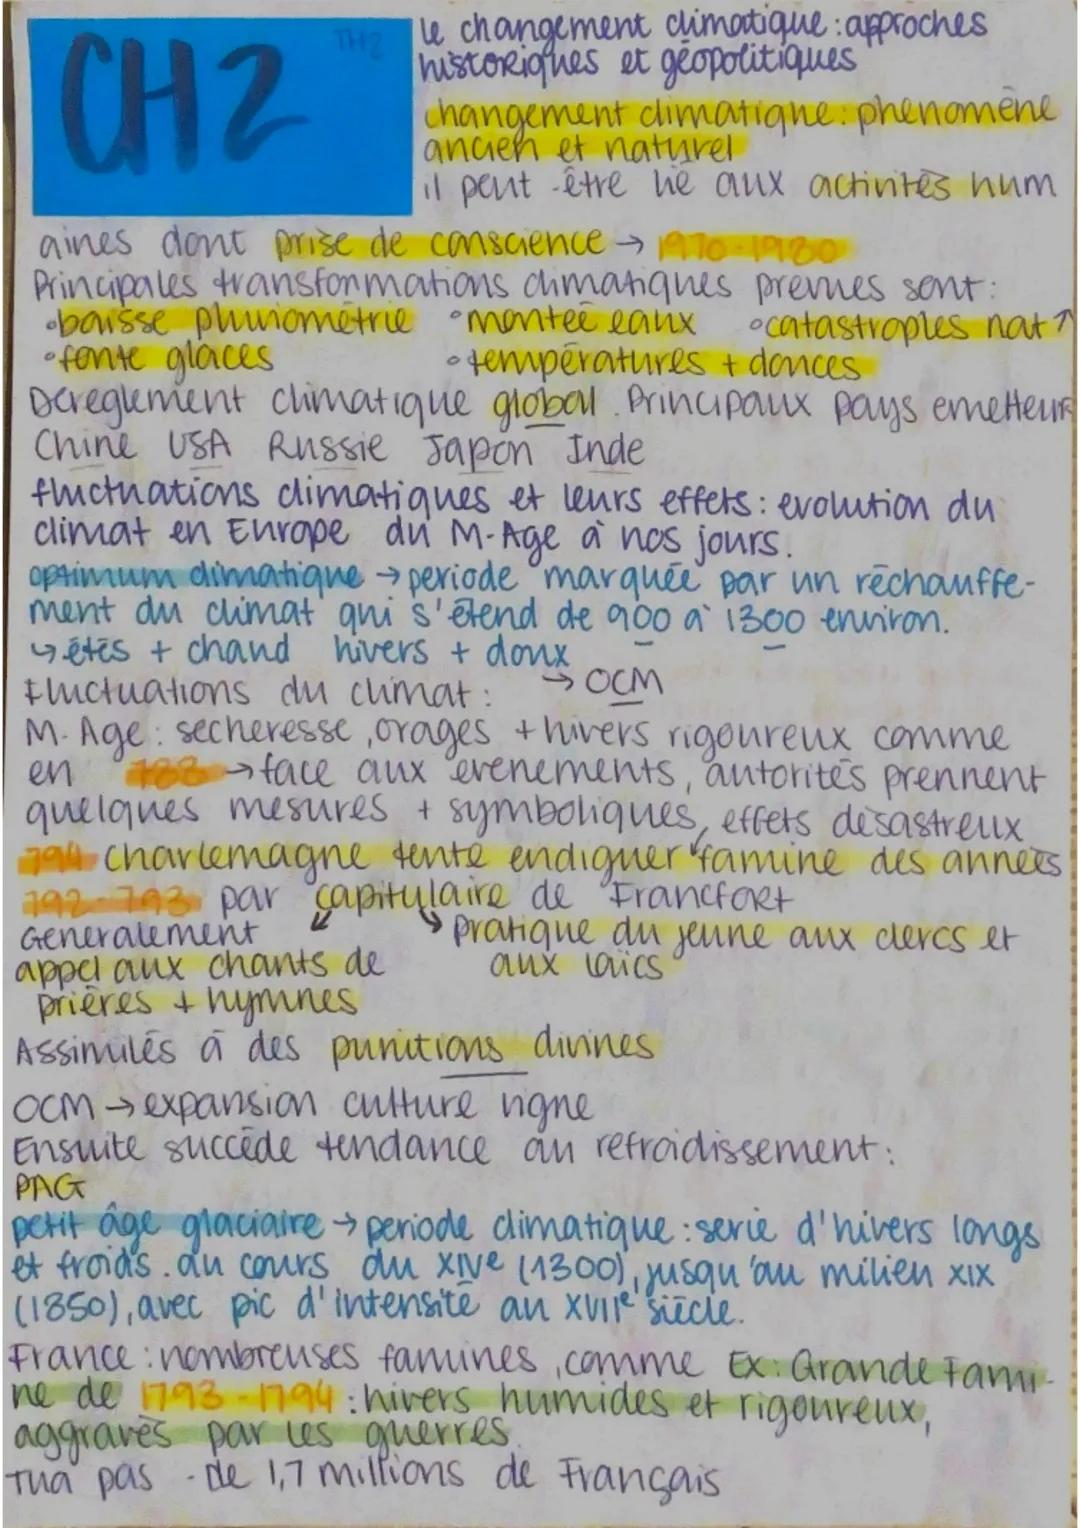 CH2
TH2
le changement climatique : approches
historiques et géopolitiques
changement climatique : phenomène
ancien et naturel
il peut-être lié aux activités hum
aines dont prise de conscience → 1970-1980
Principales transformations climatiques prevues sont :
•baisse pluviométrie •montée eaux •catastroples nat ↑
•fonte glaces •températures + douces
Dereglement climatique global. Principaux pays emetteur
Chine USA Russie Japon Inde
fluctuations climatiques et leurs effets : evolution du
climat en Europe du M-Age à nos jours.
optimum climatique → periode marquée par un réchauffe-
ment du climat qui s'étend de 900 à 1300 environ.
↳ étés + chaud hivers + doux
→ OCM
Fluctuations du climat :
M-Age : secheresse, orages + hivers rigoureux comme
en 788 → face aux evenements, autorités prennent
quelques mesures + symboliques, effets désastreux
794 Charlemagne tente endiguer famine des années
792-793 par capitulaire de Francfort
Generalement
appel aux chants de
prières + hymnes
↳ pratique du jeune aux clercs et
aux laïcs
Assimilés à des punitions divines
OCM → expansion culture vigne
Ensuite succède tendance au refroidissement :
PAG
petit âge glaciaire → periode climatique : serie d'hivers longs
et froids. au cours du XIVe (1300), jusqu'au milieu XIX
(1850), avec pic d'intensité au XVIIe siècle.
France : nombreuses famines, comme Ex : Grande Fami-
ne de 1793-1794 : hivers humides et rigoureux,
aggravés par les guerres.
Tua pas - de 1,7 millions de Français